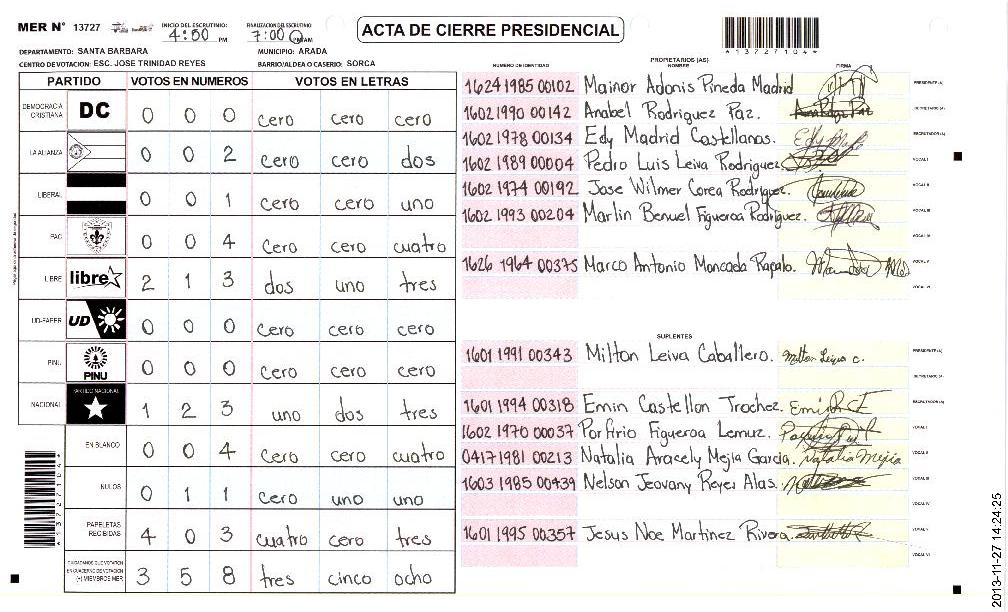 MER N° 13727
INICIO DEL ESCRUTINIO
4:50 PM
FINALIZACION DEL ESCRUTINIO
7:00
ACTA DE CIERRE PRESIDENCIAL
*13727104*
DEPARTAMENTO: SANTA BARBARA
MUNICIPIO: ARADA
CENTRO DE VOTACION: ESC. JOSE TRINIDAD REYES
BARRIO/ALDEA O CASERIO: SORCA
PARTIDO VOTOS EN NUMEROS VOTOS EN LETRAS
DEMOCRACIA CRISTIANA DC 0 0 0 cero cero cero
LA ALIANZA 0 0 2 cero cero dos
LIBERAL 0 0 1 cero cero uno
PAC 0 0 4 cero cero cuatro
LIBRE libre 2 1 3 dos uno tres
UD-FAPER UD 0 0 0 cero cero cero
PINU PINU 0 0 0 cero cero cero
NACIONAL PARTIDO NACIONAL 1 2 3 uno dos tres
EN BLANCO 0 0 4 cero cero cuatro
NULOS 0 1 1 cero uno uno
PAPELETAS RECIBIDAS 4 0 3 cuatro cero tres
CIUDADANOS QUE VOTARON EN CUADERNO DE VOTACION (+) MIEMBROS MER 3 5 8 tres cinco ocho
PROPIETARIOS (AS)
NUMERO DE IDENTIDAD NOMBRE FIRMA
1624 1985 00102 Mainor Adonis Pineda Madrid PRESIDENTE (A)
1602 1990 00142 Anabel Rodriguez Paz. SECRETARIO (A)
1602 1978 00134 Edy Madrid Castellanos ESCRUTADOR (A)
1602 1989 00004 Pedro Luis Leiva Rodriguez VOCAL I
1602 1974 00192 Jose Wilmer Corea Rodriguez. VOCAL II
1602 1993 00204 Marlin Benuel Figueroa Rodriguez. VOCAL III
VOCAL IV
1626 1964 00375 Marco Antonio Moncada Rapalo. VOCAL V
VOCAL VI
SUPLENTES
1601 1991 00343 Milton Leiva Caballero. PRESIDENTE (A)
SECRETARIO (A)
1601 1994 00318 Emin Castellon Trochez. ESCRUTADOR (A)
1602 1970 00037 Porfirio Figueroa Lemuz. VOCAL I
0417 1981 00213 Natalia Aracely Mejia Garcia. Natalia Mejia VOCAL II
1603 1985 00439 Nelson Jeovany Reyes Alas. VOCAL III
VOCAL IV
1601 1995 00357 Jesus Noe Martinez Rivera VOCAL V
VOCAL VI
2013-11-27 14:24:25